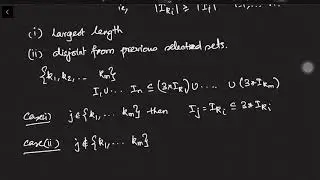 ie, |I_{k_i}| ≥ |I_j|
(i) largest length
(ii) disjoint from previous selected sets.
{k_1, k_2, .. k_m}
I_1 ∪ ... I_n ⊆ (3*I_{k_1}) ∪ .... ∪ (3*I_{k_m})
Case(i) j ∈ {k_1, ... k_m} then I_j = I_{k_i} ⊆ 3*I_{k_i}
Case(ii) j ∉ {k_1, ... k_m}